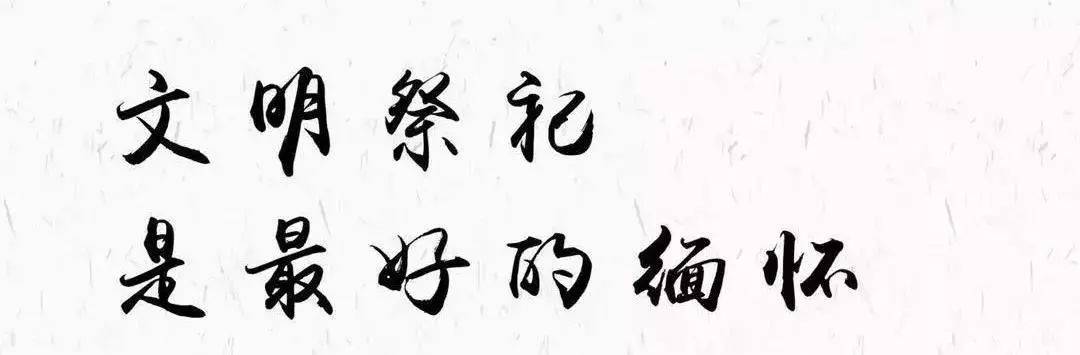 文明祭祀
是最好的缅怀